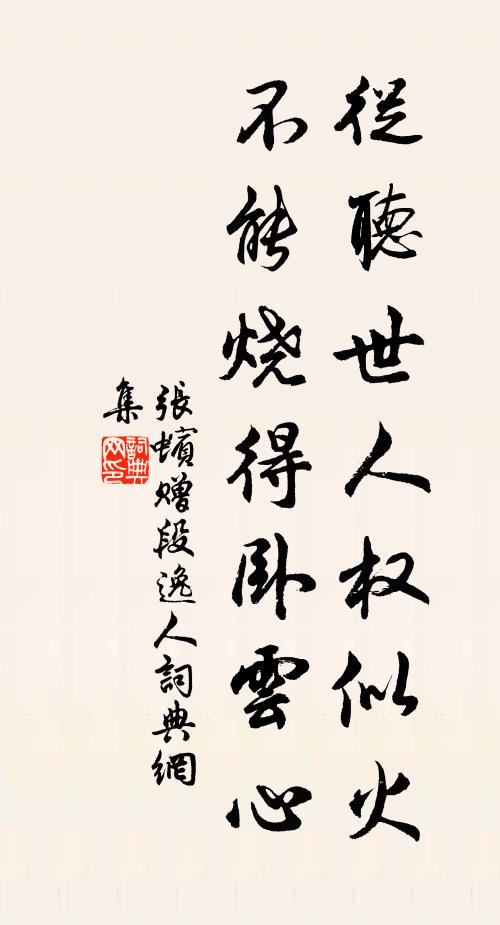 從聽世人权似火
不能烧得卧雲心
張蠙赠段逸人詞典網
集
詞典
网印